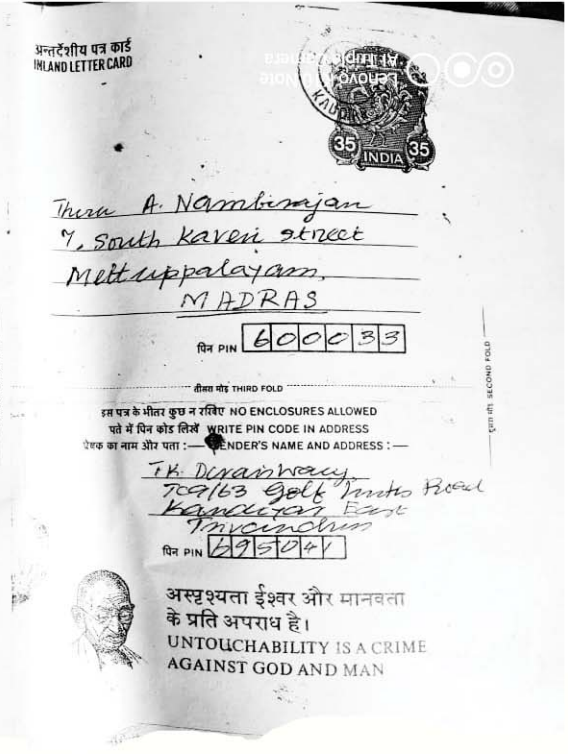 अन्तर्देशीय पत्र कार्ड
INLAND LETTER CARD
Lenovo K10 Note
AI Triple Camera
35 INDIA 35
Thiru A. Nambirajan
7, South Kaveri street
Mettuppalayam,
MADRAS
पिन PIN 600033
दूसरा मोड़ SECOND FOLD
तीसरा मोड़ THIRD FOLD
इस पत्र के भीतर कुछ न रखिए NO ENCLOSURES ALLOWED
पते में पिन कोड लिखें WRITE PIN CODE IN ADDRESS
प्रेषक का नाम और पता :— SENDER'S NAME AND ADDRESS :—
T.K. Doraiswamy
TC9/63 Golf Links Road
East
Trivandrum
पिन PIN 695041
अस्पृश्यता ईश्वर और मानवता
के प्रति अपराध है।
UNTOUCHABILITY IS A CRIME
AGAINST GOD AND MAN